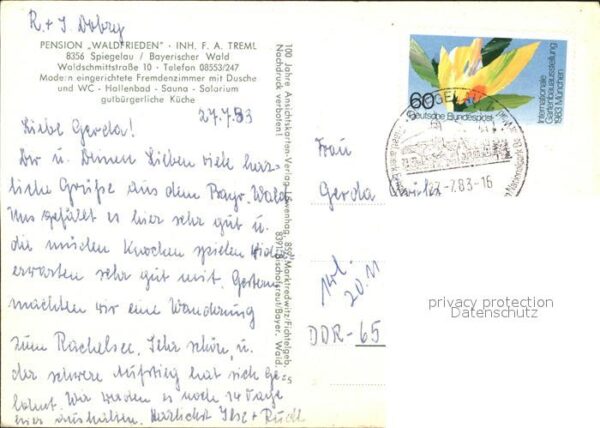 R. + I. Dobry
PENSION „WALDFRIEDEN" · INH. F. A. TREML
8356 Spiegelau / Bayerischer Wald
Waldschmittstraße 10 · Telefon 08553/247
Modern eingerichtete Fremdenzimmer mit Dusche
und WC · Hallenbad - Sauna - Solarium
gutbürgerliche Küche
27.7.83
Liebe Gerda!
Dir u. Deinen Lieben viele herz-
liche Grüße aus dem Bayr. Wald
Uns gefällt es hier sehr gut u.
die müden Knochen spielen wider
erwarten sehr gut mit. Gestern
machten wir eine Wanderung
zum Rachelsee. Sehr schön, u.
der schwere Aufstieg hat sich ge-
lohnt. Wir werden es noch 14 Tage
hier aushalten. Herzlichst Ilse + Rudi
100 Jahre Ansichtskarten-Verlag Löwenhag, 859 Marktredwitz/Fichtelgeb.
Nachdruck verboten! 8391 Bischofsreut/Bayer. Wald
5
60
Deutsche Bundespost
Internationale
Gartenbauausstellung
1983 München
SPIEGELAU
27.-7.83-16
Frau
Gerda
20.11
DDR-65
privacy protection
Datenschutz